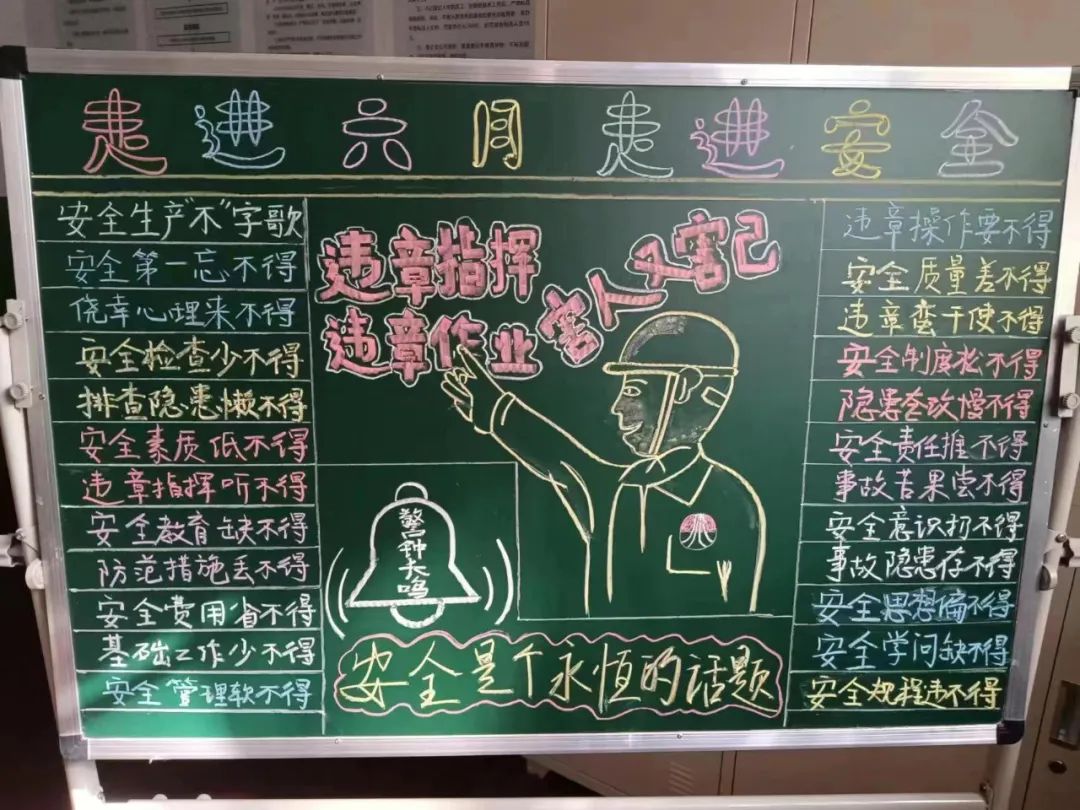 走进六月走进安全
安全生产"不"字歌
安全第一忘不得
侥幸心理来不得
安全检查少不得
排查隐患懒不得
安全素质低不得
违章指挥听不得
安全教育缺不得
防范措施丢不得
安全费用省不得
基础工作少不得
安全管理软不得
违章指挥
违章作业
害人又害己
警钟长鸣
安全是个永恒的话题
违章操作要不得
安全质量差不得
违章蛮干使不得
安全制度松不得
隐患整改慢不得
安全责任推不得
事故苦果尝不得
安全意识打不得
事故隐患存不得
安全思想偏不得
安全学问缺不得
安全规程违不得